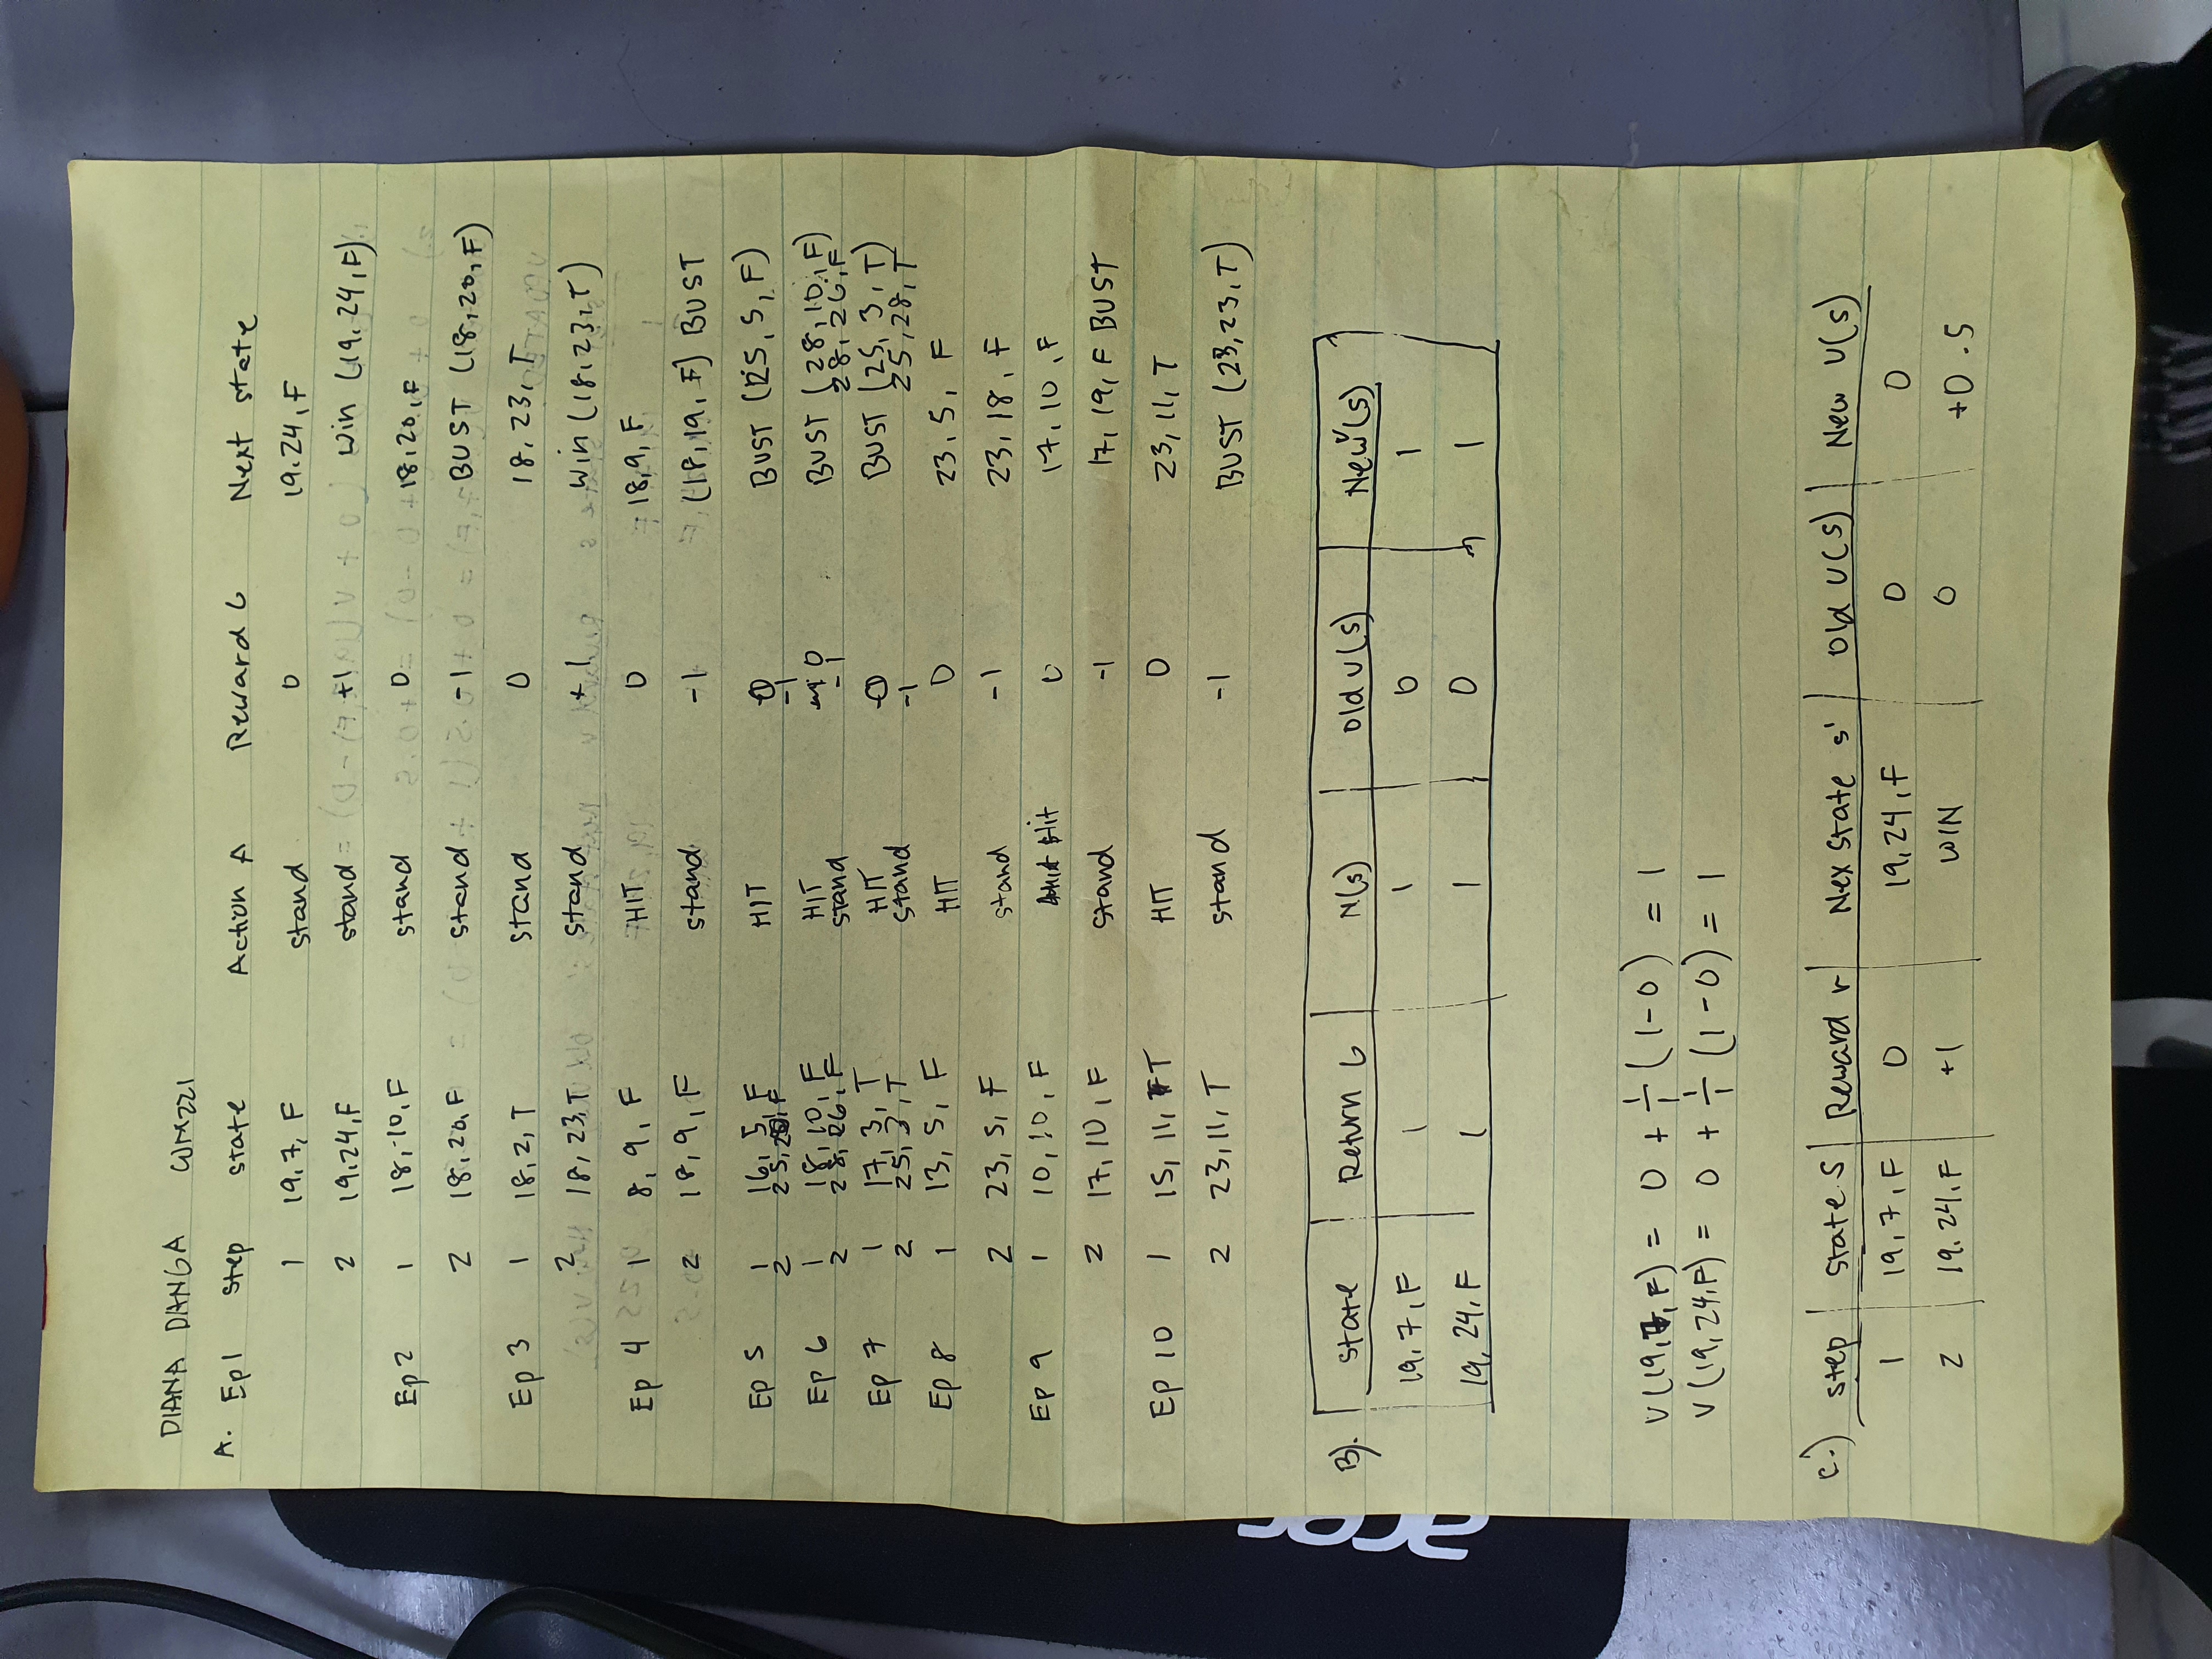 DIANA DANGA COM221
A. Ep1 Step state Action A Reward G Next state
1 19,7, F stand 0 19,24,F
2 19,24,F stand +1 Win (19,24,F)
Ep 2 1 18,10,F stand 0 18,20,F
2 18,20,F stand -1 BUST (18,20,F)
Ep 3 1 18,2,T stand 0 18,23,T
2 18,23,T stand +1 Win (18,23,T)
Ep 4 1 8,9,F HIT 0 18,9,F
2 18,9,F stand -1 (18,19,F) BUST
Ep 5 1 16,5,F HIT 0 BUST (25,5,F)
2 F -1
Ep 6 1 18,10,F HIT 0 BUST (28,10,F)
2 28,26,F stand -1 28,26,F
Ep 7 1 17,3,T HIT 0 BUST (25,3,T)
2 25,3,T stand -1 25,28,T
Ep 8 1 13,5,F HIT 0 23,5,F
2 23,5,F stand -1 23,18,F
Ep 9 1 10,10,F Hit 0 17,10,F
2 17,10,F stand -1 17,19,F BUST
Ep 10 1 15,11,T HIT 0 23,11,T
2 23,11,T stand -1 BUST (23,23,T)
B). state Return G N(s) Old V(s) New V(s)
19,7,F 1 1 0 1
19,24,F 1 1 0 1
V(19,7,F) = 0 + 1/1 (1-0) = 1
V(19,24,F) = 0 + 1/1 (1-0) = 1
C.) step state S Reward r Nex state s' Old V(s) New V(s)
1 19,7,F 0 19,24,F 0 0
2 19,24,F +1 WIN 0 +0.5
acer